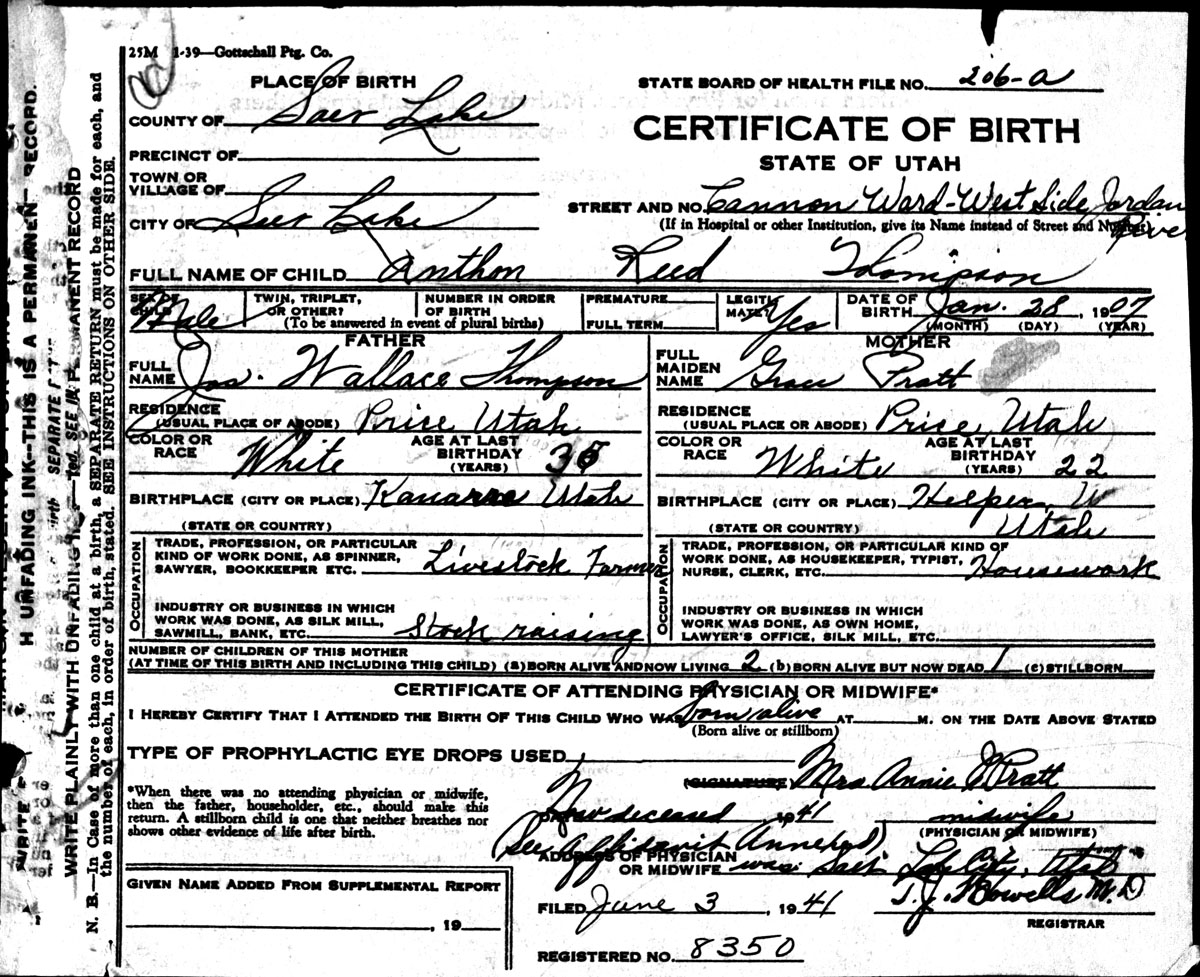 25M 1-39—Gottschall Ptg. Co.
PLACE OF BIRTH
STATE BOARD OF HEALTH FILE NO. 206-a
COUNTY OF Salt Lake
CERTIFICATE OF BIRTH
PRECINCT OF
STATE OF UTAH
TOWN OR
VILLAGE OF
STREET AND NO. Cannon Ward-West Side Jordan
River
CITY OF Salt Lake
(If in Hospital or other Institution, give its Name instead of Street and Number)
FULL NAME OF CHILD Anthon Reed Thompson
SEX OF
CHILD Male
TWIN, TRIPLET,
OR OTHER?
(To be answered in event of plural births)
NUMBER IN ORDER
OF BIRTH
PREMATURE
FULL TERM
LEGITI-
MATE? Yes
DATE OF
BIRTH Jan. 28, 1907
(MONTH) (DAY) (YEAR)
FATHER
FULL
NAME Jos. Wallace Thompson
RESIDENCE
(USUAL PLACE OF ABODE) Price Utah
COLOR OR
RACE White
AGE AT LAST
BIRTHDAY
(YEARS) 36
BIRTHPLACE (CITY OR PLACE) Kanarra Utah
(STATE OR COUNTRY)
OCCUPATION
TRADE, PROFESSION, OR PARTICULAR
KIND OF WORK DONE, AS SPINNER,
SAWYER, BOOKKEEPER ETC. Livestock Farmer
INDUSTRY OR BUSINESS IN WHICH
WORK WAS DONE, AS SILK MILL,
SAWMILL, BANK, ETC. Stock raising
MOTHER
FULL
MAIDEN
NAME Grace Pratt
RESIDENCE
(USUAL PLACE OR ABODE) Price, Utah
COLOR OR
RACE White
AGE AT LAST
BIRTHDAY
(YEARS) 22
BIRTHPLACE (CITY OR PLACE) Helper, W
(STATE OR COUNTRY) Utah
OCCUPATION
TRADE, PROFESSION, OR PARTICULAR KIND OF
WORK DONE, AS HOUSEKEEPER, TYPIST,
NURSE, CLERK, ETC. Housework
INDUSTRY OR BUSINESS IN WHICH
WORK WAS DONE, AS OWN HOME,
LAWYER'S OFFICE, SILK MILL, ETC.
NUMBER OF CHILDREN OF THIS MOTHER
(AT TIME OF THIS BIRTH AND INCLUDING THIS CHILD) (a) BORN ALIVE AND NOW LIVING 2 (b) BORN ALIVE BUT NOW DEAD 1 (c) STILLBORN
CERTIFICATE OF ATTENDING PHYSICIAN OR MIDWIFE*
I HEREBY CERTIFY THAT I ATTENDED THE BIRTH OF THIS CHILD WHO WAS born alive AT M. ON THE DATE ABOVE STATED
(Born alive or stillborn)
TYPE OF PROPHYLACTIC EYE DROPS USED
SIGNATURE Mrs Annie J Pratt
*When there was no attending physician or midwife,
then the father, householder, etc., should make this
return. A stillborn child is one that neither breathes nor
shows other evidence of life after birth.
Now deceased 1941 midwife
(PHYSICIAN OR MIDWIFE)
(See Affidavit Annexed)
ADDRESS OF PHYSICIAN
OR MIDWIFE was: Salt Lake City, Utah
GIVEN NAME ADDED FROM SUPPLEMENTAL REPORT
, 19
FILED June 3, 1941 T. J. Howells M.D
REGISTRAR
REGISTERED NO. 8350
WRITE PLAINLY WITH UNFADING INK—THIS IS A PERMANENT RECORD
N. B.—In Case of more than one child at a birth, a SEPARATE RETURN must be made for each, and
the number of each, in order of birth, stated. SEE INSTRUCTIONS ON OTHER SIDE.